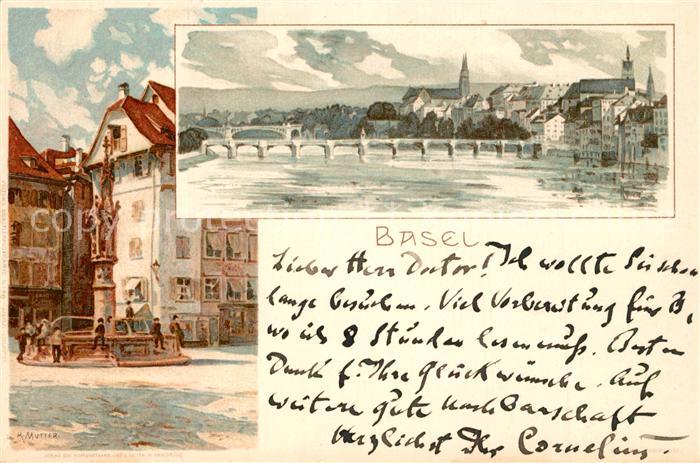 BASEL
Lieber Herr Doctor! Ich wollte Sie schon
lange besuchen. Viel Vorbereitung für B,
wo ich 8 Stunden lesen muß. Besten
Dank f. Ihre Glückwünsche. Auf
weitere gute Nachbarschaft
Herzlichst Ihr Cornelius.
K. MUTTER